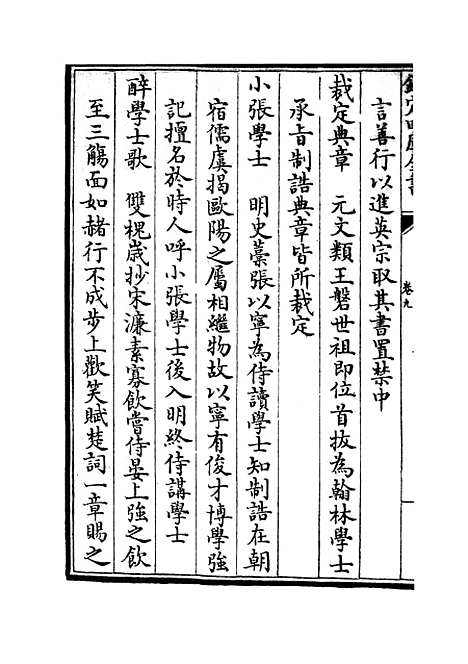 欽定四庫全書
卷九
言善行以進英宗取其書置禁中
裁定典章　元文類王磐世祖即位首拔為翰林學士
承旨制誥典章皆所裁定
小張學士　明史藁張以寧為侍讀學士知制誥在朝
宿儒虞揭歐陽之屬相繼物故以寧有俊才博學強
記擅名於時人呼小張學士後入明終侍講學士
醉學士歌　雙槐歲抄宋濂素寡飲嘗侍宴上強之飲
至三觴面如赭行不成步上歡笑賦楚詞一章賜之